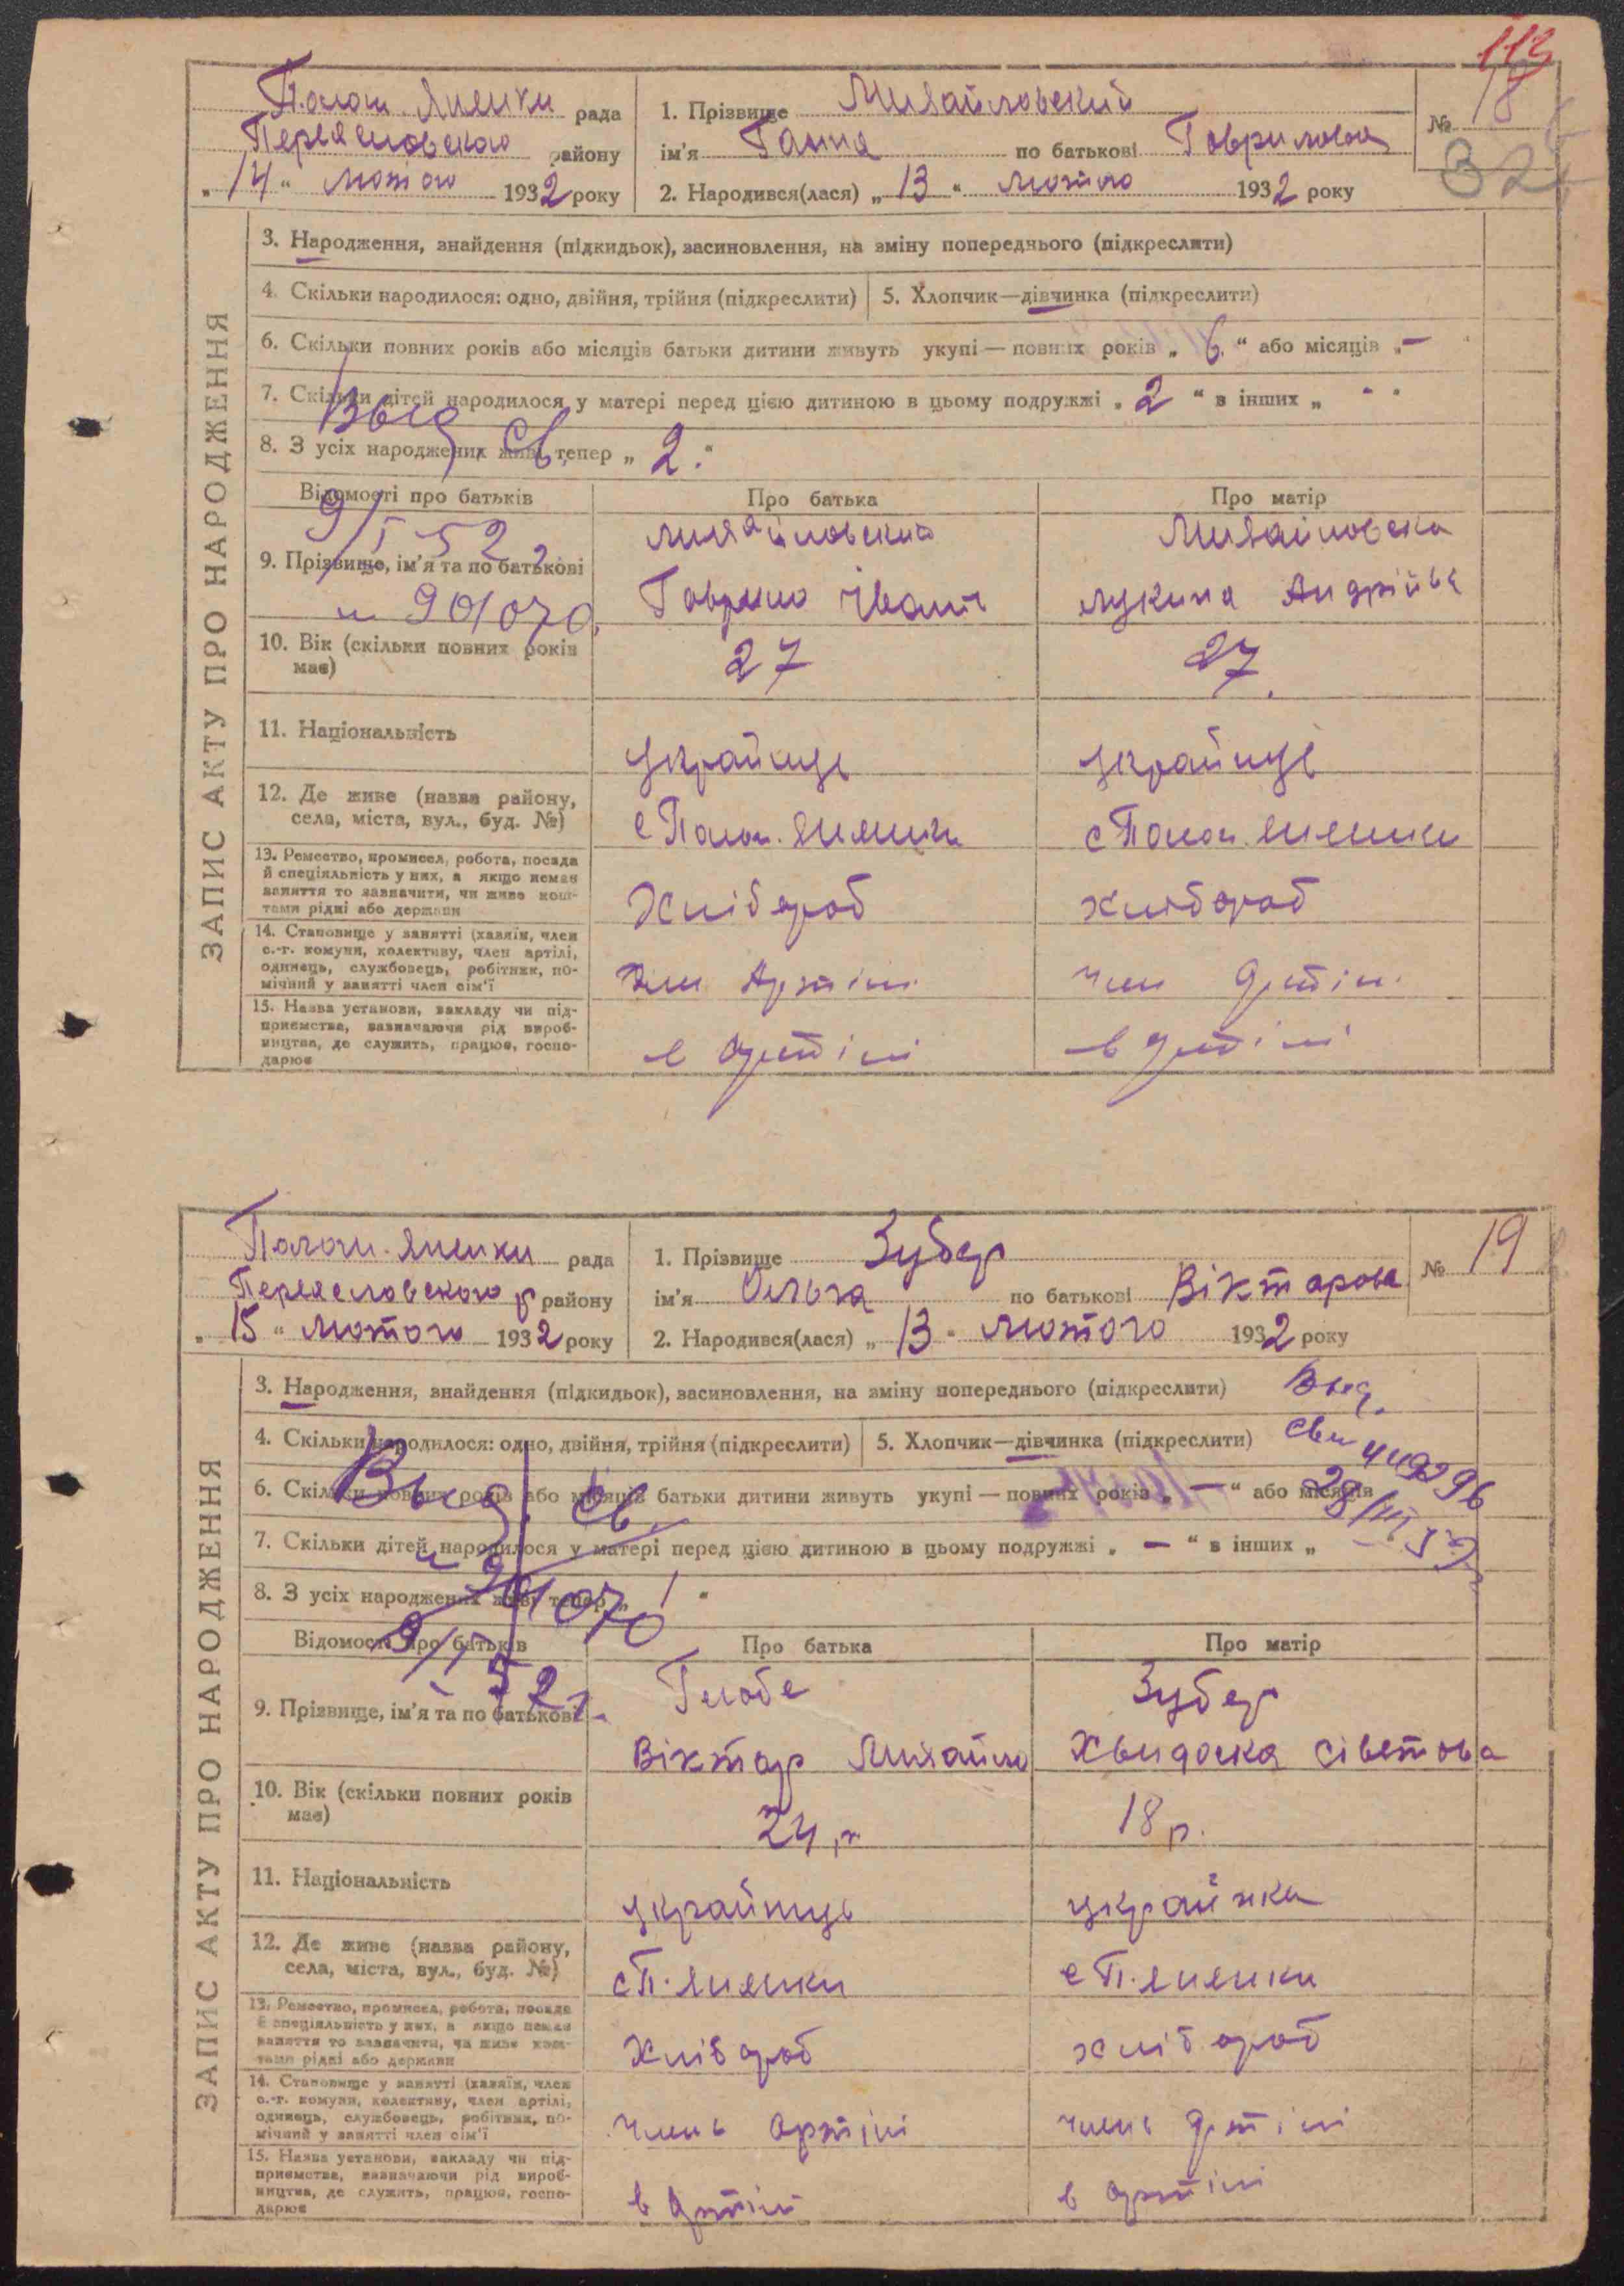 113
Полог. Яненки рада
Переяславского району
„14“ лютого 1932 року
1. Прізвище Михайловский
ім'я Ганна по батькові Гаврилова
2. Народився(лася) „13“ лютого 1932 року
№ 18
32
ЗАПИС АКТУ ПРО НАРОДЖЕННЯ
3. Народження, знайдення (підкидьок), засиновлення, на зміну попереднього (підкреслити)
4. Скільки народилося: одно, двійня, трійня (підкреслити)
5. Хлопчик—дівчинка (підкреслити)
6. Скільки повних років або місяців батьки дитини живуть укупі — повних років „6.“ або місяців „—
7. Скільки дітей народилося у матері перед цією дитиною в цьому подружжі „2“ в інших „
8. З усіх народжених живі тепер „2.“
Выд. Св.
9/I 52 г
н 901070.
Відомості про батьків
Про батька
Про матір
9. Прізвище, ім'я та по батькові
Михайловский
Гаврило Іванів
Михайловска
Лукина Андрійва
10. Вік (скільки повних років має)
27
27.
11. Національність
українць
українць
12. Де живе (назва району, села, міста, вул., буд. №)
с Полог. Яненки
с Полог. Яненки
13. Ремество, промисел, робота, посада
й спеціяльність у них, а якщо немає
заняття то зазначити, чи живе кош-
тами рідні або держави
Хлібороб
хлібороб
14. Становище у занятті (хазяїн, член
с.-г. комуни, колективу, член артілі,
одинець, службовець, робітник, по-
мічний у занятті член сім'ї
член Артіли
член артіли
15. Назва установи, закладу чи під-
приємства, зазначаючи рід вироб-
ництва, де служить, працює, госпо-
дарює
в артілі
в артілі
Полог. Яненки рада
Переяславского р району
„15“ лютого 1932 року
1. Прізвище Зубер
ім'я Ольга по батькові Віктарова
2. Народився(лася) „13“ лютого 1932 року
№ 19
ЗАПИС АКТУ ПРО НАРОДЖЕННЯ
3. Народження, знайдення (підкидьок), засиновлення, на зміну попереднього (підкреслити)
Выд.
4. Скільки народилося: одно, двійня, трійня (підкреслити)
5. Хлопчик—дівчинка (підкреслити)
6. Скільки повних років або місяців батьки дитини живуть укупі — повних років „—“ або місяців
7. Скільки дітей народилося у матері перед цією дитиною в цьому подружжі „—“ в інших „
8. З усіх народжених живі тепер „
Выд. Св.
н 901070
9/I 52 г.
Відомості про батьків
Про батька
Про матір
9. Прізвище, ім'я та по батькові
Глоба
Віктар Михайло
Зубер
10. Вік (скільки повних років має)
24 р
18 р.
11. Національність
українць
українка
12. Де живе (назва району, села, міста, вул., буд. №)
с П. Яненки
с П. Яненки
13. Ремество, промисел, робота, посада
й спеціяльність у них, а якщо немає
заняття то зазначити, чи живе кош-
тами рідні або держави
Хлібороб
хлібороб
14. Становище у занятті (хазяїн, член
с.-г. комуни, колективу, член артілі,
одинець, службовець, робітник, по-
мічний у занятті член сім'ї
члень артілі
члень артілі
15. Назва установи, закладу чи під-
приємства, зазначаючи рід вироб-
ництва, де служить, працює, госпо-
дарює
в артілі
в артілі